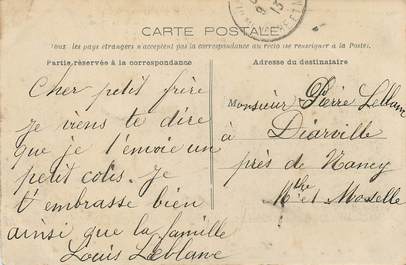 CARTE POSTALE
Tous les pays étrangers n'acceptent pas la correspondance au recto (se renseigner à la Poste).
Partie réservée à la correspondance
Cher petit frère
je viens te dire
que je t'envoie un
petit colis. Je
t'embrasse bien
ainsi que la famille
Louis Leblanc
Adresse du destinataire
Monsieur Pierre Leblanc
à Diarville
près de Nancy
Mthe et Moselle
13